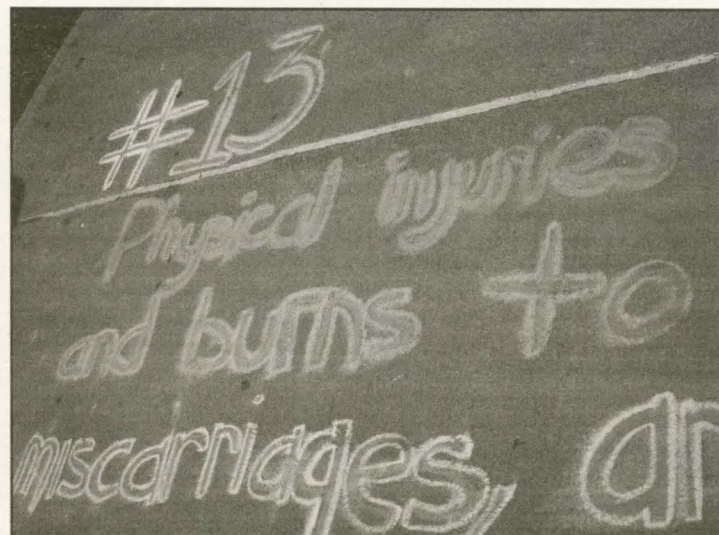 #13
Physical injuries
and burns to
miscarriages,